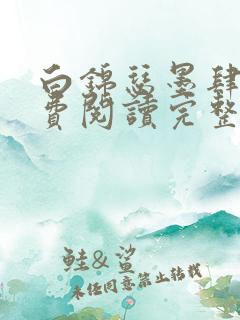 白錦瑟墨肆
費閱讀完整
鮭&鯊
未经同意禁止转载